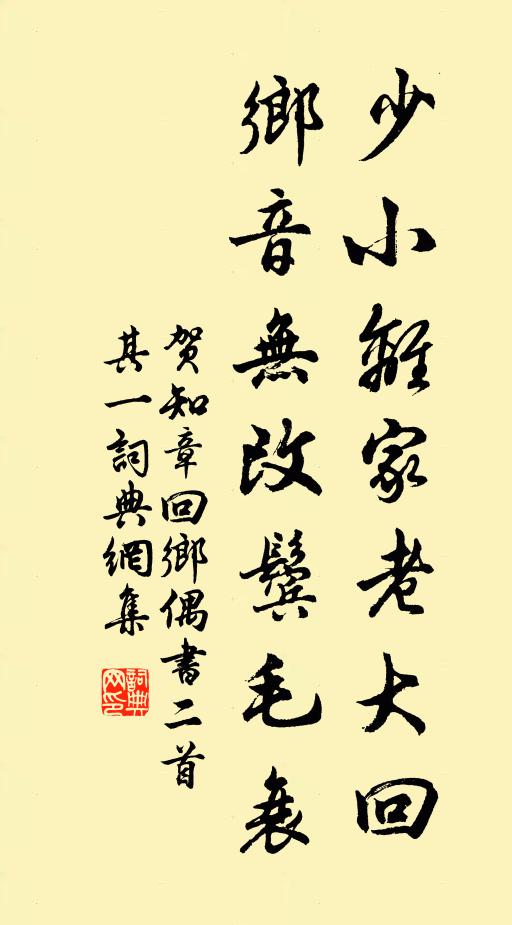 少小離家老大回
鄉音無改鬢毛衰
賀知章回鄉偶書二首
其一詞典網集
詞典
网印